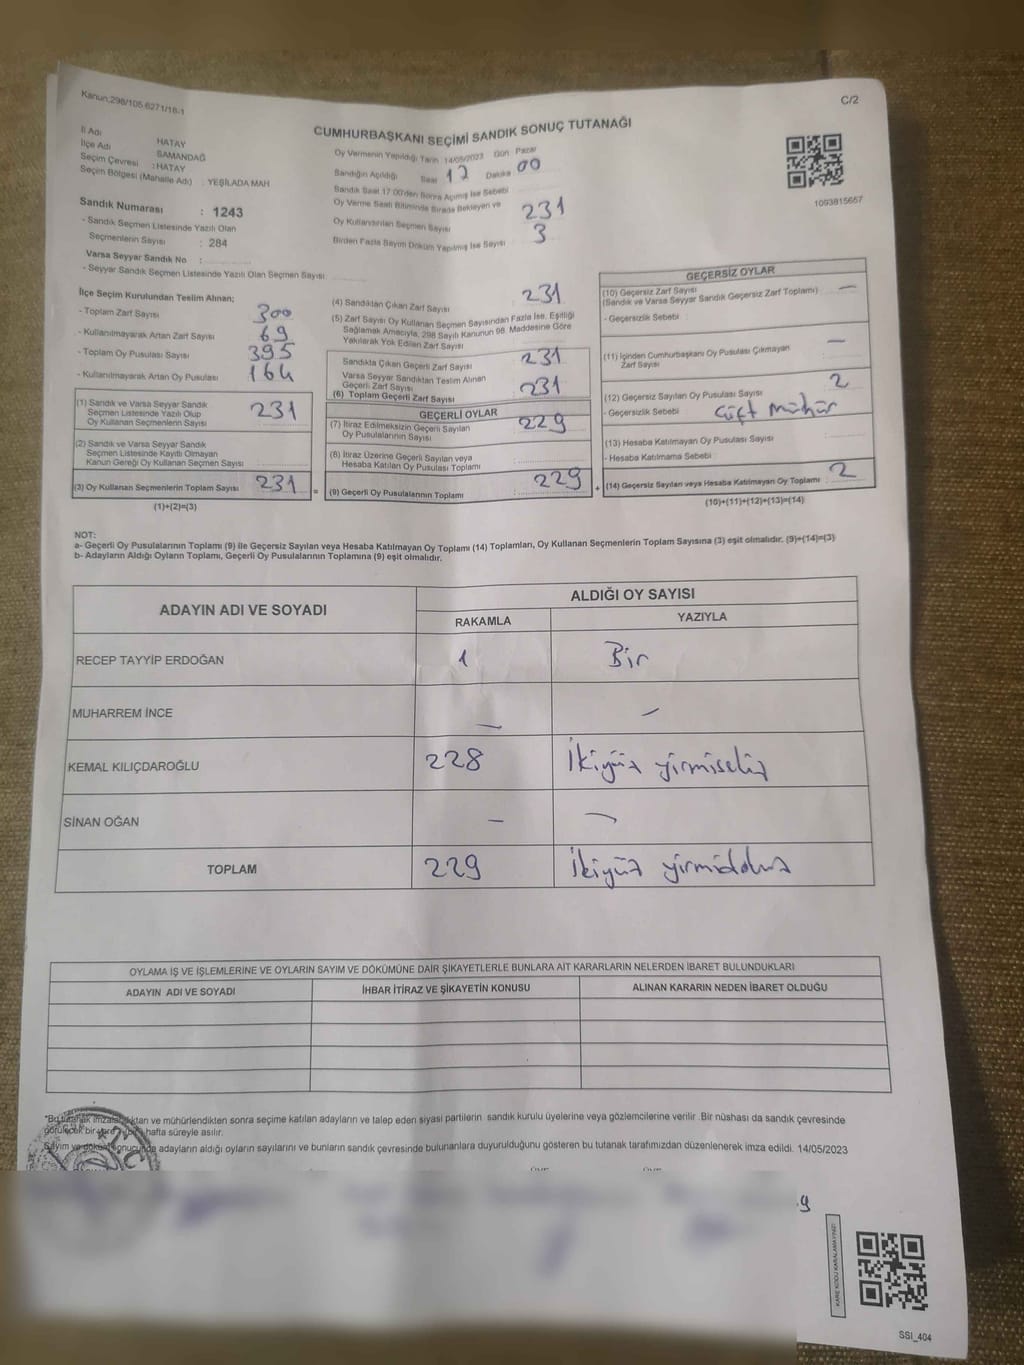 Kanun:298/105 6271/18-1
C/2
CUMHURBAŞKANI SEÇİMİ SANDIK SONUÇ TUTANAĞI
İl Adı HATAY
İlçe Adı SAMANDAĞ
Seçim Çevresi : HATAY
Seçim Bölgesi (Mahalle Adı) : YEŞİLADA MAH
Sandık Numarası : 1243
- Sandık Seçmen Listesinde Yazılı Olan
Seçmenlerin Sayısı : 284
Varsa Seyyar Sandık No :
- Seyyar Sandık Seçmen Listesinde Yazılı Olan Seçmen Sayısı
Oy Vermenin Yapıldığı Tarih 14/05/2023 Gün Pazar
Sandığın Açıldığı Saat 17 Dakika 00
Sandık Saat 17:00'den Sonra Açılmış İse Sebebi
Oy Verme Saati Bitiminde Sırada Bekleyen ve
Oy Kullandırılan Seçmen Sayısı 231
Birden Fazla Sayım Döküm Yapılmış İse Sayısı 3
1093815657
İlçe Seçim Kurulundan Teslim Alınan;
- Toplam Zarf Sayısı 300
- Kullanılmayarak Artan Zarf Sayısı 69
- Toplam Oy Pusulası Sayısı 395
- Kullanılmayarak Artan Oy Pusulası 164
(1) Sandık ve Varsa Seyyar Sandık
Seçmen Listesinde Yazılı Olup
Oy Kullanan Seçmenlerin Sayısı 231
(2) Sandık ve Varsa Seyyar Sandık
Seçmen Listesinde Kayıtlı Olmayan
Kanun Gereği Oy Kullanan Seçmen Sayısı
(3) Oy Kullanan Seçmenlerin Toplam Sayısı 231
(1)+(2)=(3)
(4) Sandıktan Çıkan Zarf Sayısı 231
(5) Zarf Sayısı Oy Kullanan Seçmen Sayısından Fazla İse, Eşitliği
Sağlamak Amacıyla, 298 Sayılı Kanunun 98. Maddesine Göre
Yakılarak Yok Edilen Zarf Sayısı
Sandıkta Çıkan Geçerli Zarf Sayısı 231
Varsa Seyyar Sandıktan Teslim Alınan
Geçerli Zarf Sayısı
(6) Toplam Geçerli Zarf Sayısı 231
GEÇERLİ OYLAR
(7) İtiraz Edilmeksizin Geçerli Sayılan
Oy Pusulalarının Sayısı 229
(8) İtiraz Üzerine Geçerli Sayılan veya
Hesaba Katılan Oy Pusulası Toplamı
= (9) Geçerli Oy Pusulalarının Toplamı : 229 +
GEÇERSİZ OYLAR
(10) Geçersiz Zarf Sayısı —
(Sandık ve Varsa Seyyar Sandık Geçersiz Zarf Toplamı)
- Geçersizlik Sebebi
(11) İçinden Cumhurbaşkanı Oy Pusulası Çıkmayan
Zarf Sayısı —
(12) Geçersiz Sayılan Oy Pusulası Sayısı 2
- Geçersizlik Sebebi Çift mühür
(13) Hesaba Katılmayan Oy Pusulası Sayısı
- Hesaba Katılmama Sebebi
(14) Geçersiz Sayılan veya Hesaba Katılmayan Oy Toplamı : 2
(10)+(11)+(12)+(13)=(14)
NOT:
a- Geçerli Oy Pusulalarının Toplamı (9) ile Geçersiz Sayılan veya Hesaba Katılmayan Oy Toplamı (14) Toplamları, Oy Kullanan Seçmenlerin Toplam Sayısına (3) eşit olmalıdır. (9)+(14)=(3)
b- Adayların Aldığı Oyların Toplamı, Geçerli Oy Pusulalarının Toplamına (9) eşit olmalıdır.
ADAYIN ADI VE SOYADI ALDIĞI OY SAYISI
RAKAMLA YAZIYLA
RECEP TAYYİP ERDOĞAN 1 Bir
MUHARREM İNCE — —
KEMAL KILIÇDAROĞLU 228 İkiyüz yirmisekiz
SİNAN OĞAN — —
TOPLAM 229 İkiyüz yirmidokuz
OYLAMA İŞ VE İŞLEMLERİNE VE OYLARIN SAYIM VE DÖKÜMÜNE DAİR ŞİKAYETLERLE BUNLARA AİT KARARLARIN NELERDEN İBARET BULUNDUKLARI
ADAYIN ADI VE SOYADI İHBAR İTİRAZ VE ŞİKAYETİN KONUSU ALINAN KARARIN NEDEN İBARET OLDUĞU
*Bu tutanak imzalandıktan ve mühürlendikten sonra seçime katılan adayların ve talep eden siyasi partilerin sandık kurulu üyelerine veya gözlemcilerine verilir .Bir nüshası da sandık çevresinde
görülecek bir yere bir hafta süreyle asılır.
Sayım ve döküm sonucunda adayların aldığı oyların sayılarını ve bunların sandık çevresinde bulunanlara duyurulduğunu gösteren bu tutanak tarafımızdan düzenlenerek imza edildi. 14/05/2023
T.C
KARE KODU KARALAMAYINIZ!
SSI_404